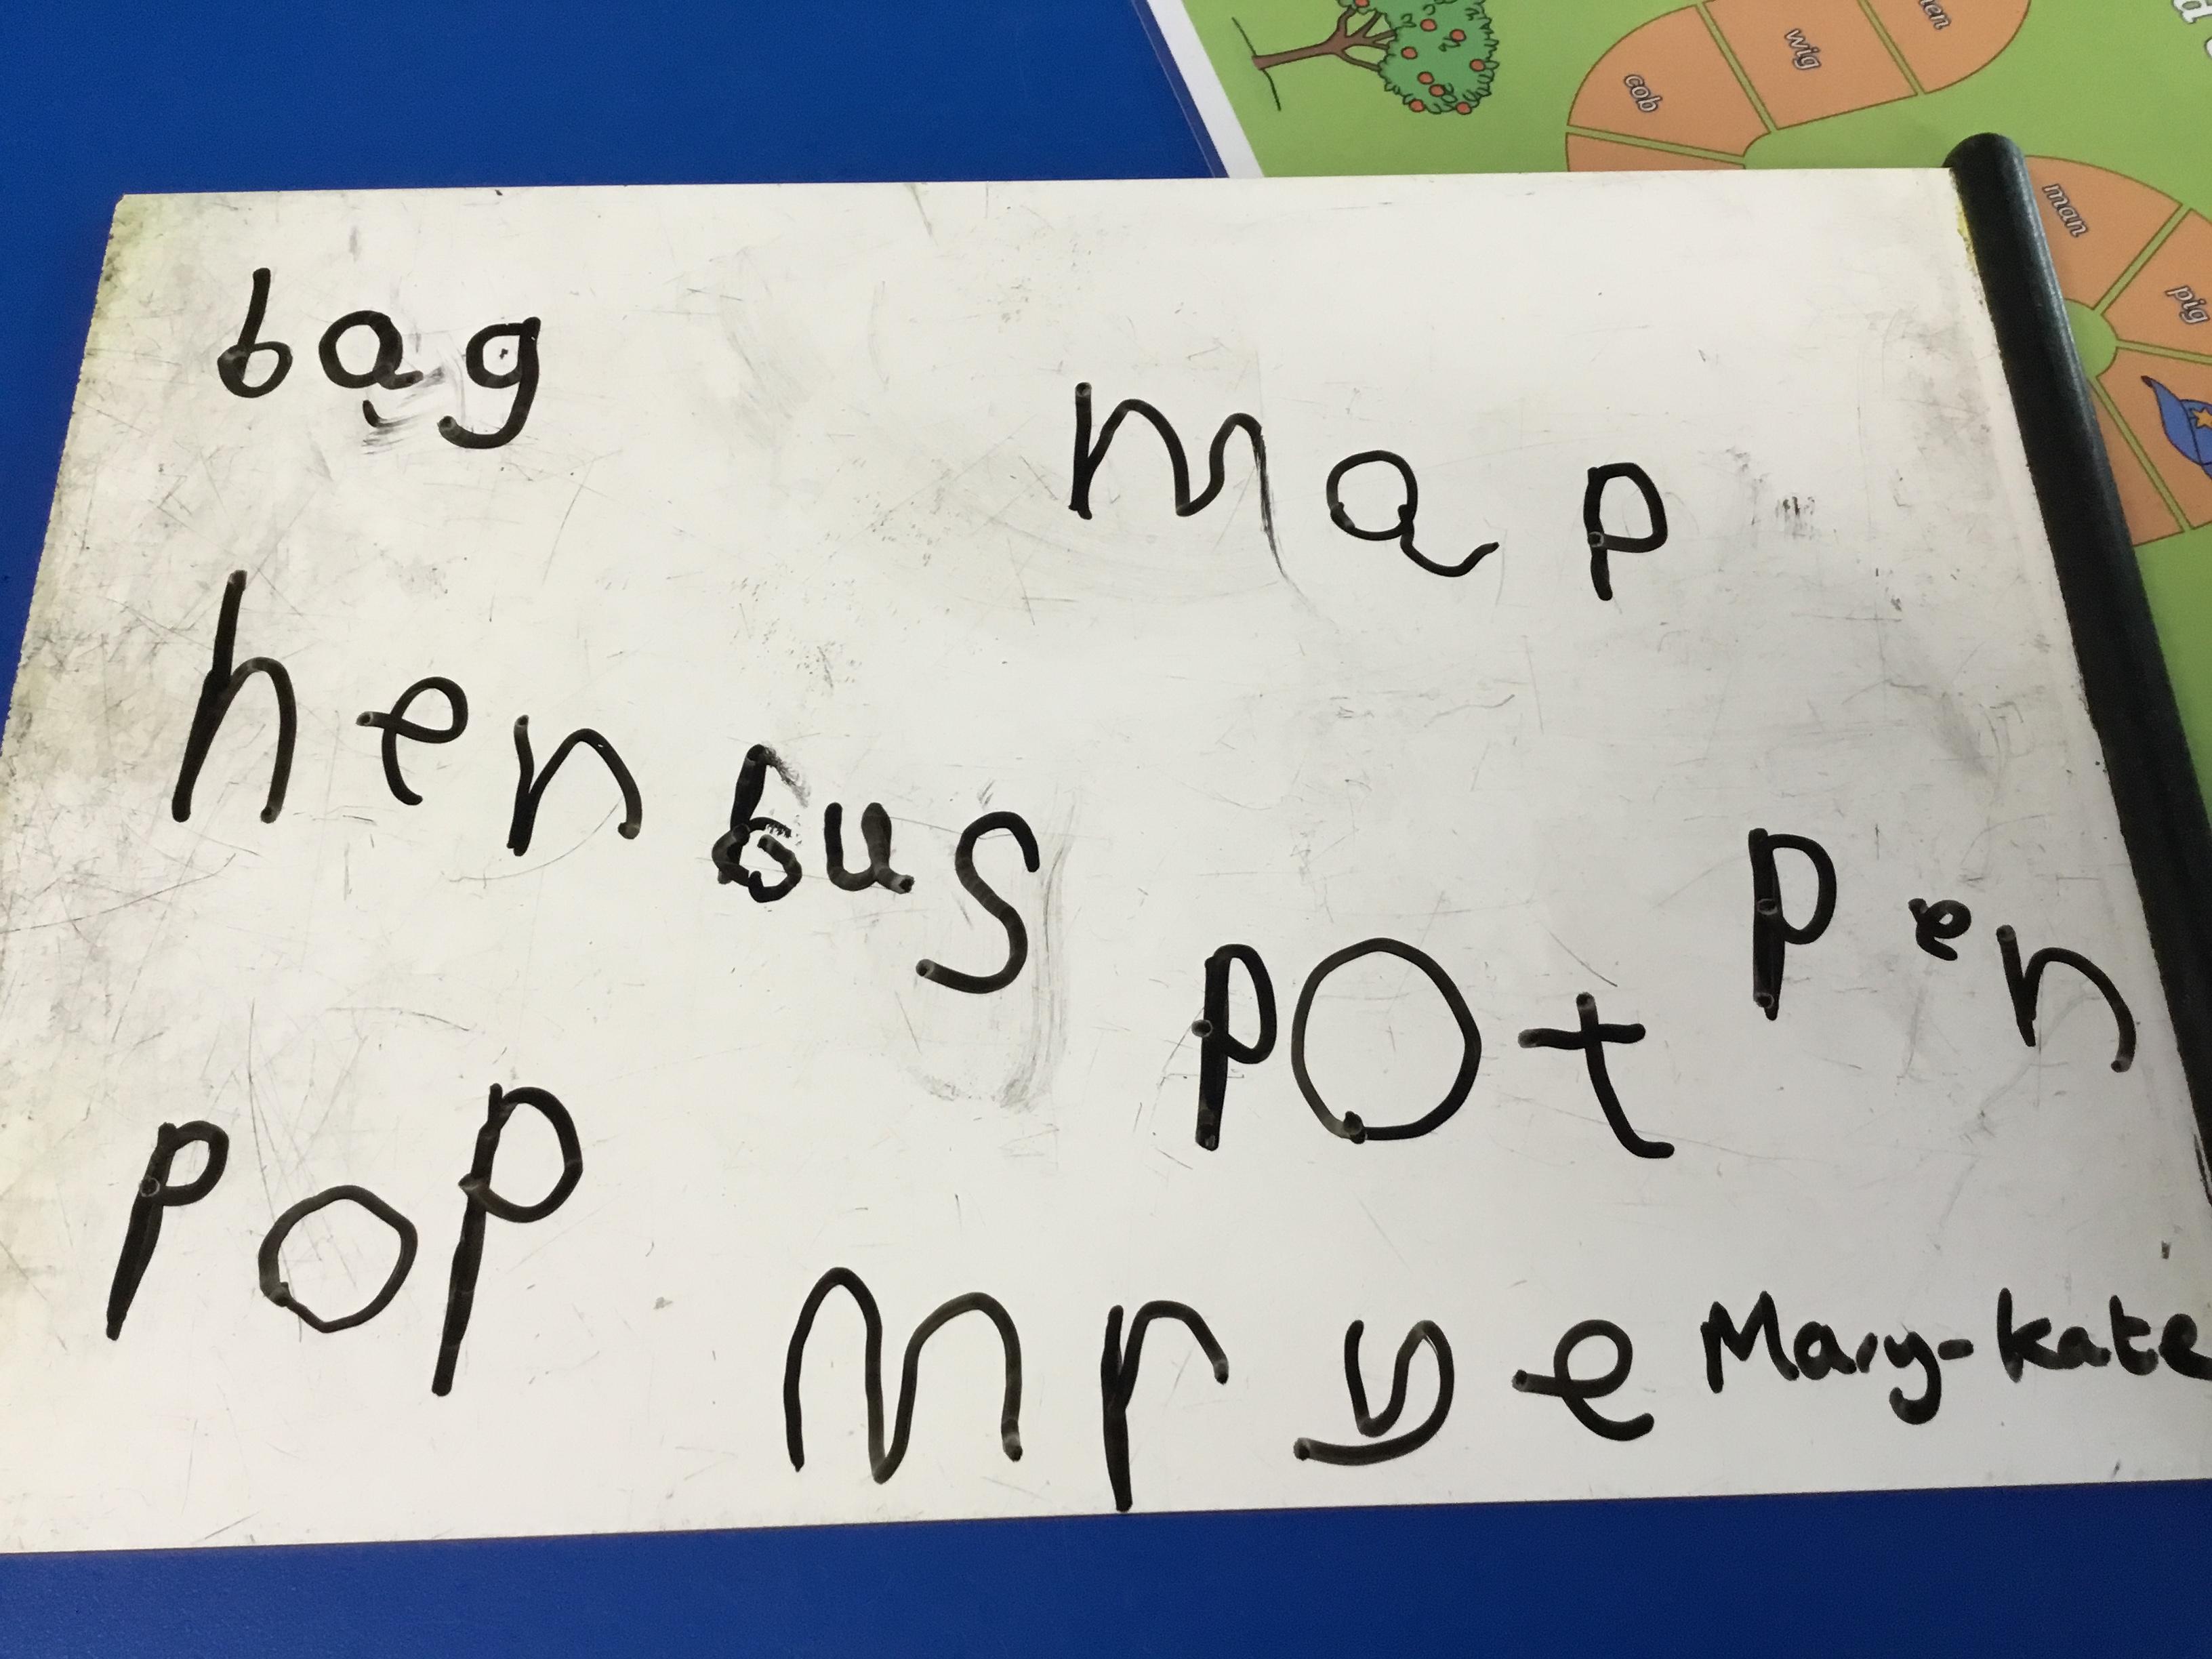 wig
cob
man
pig
bag
map
hen
bus
pen
pOt
pop
Mrye
Mary-kate